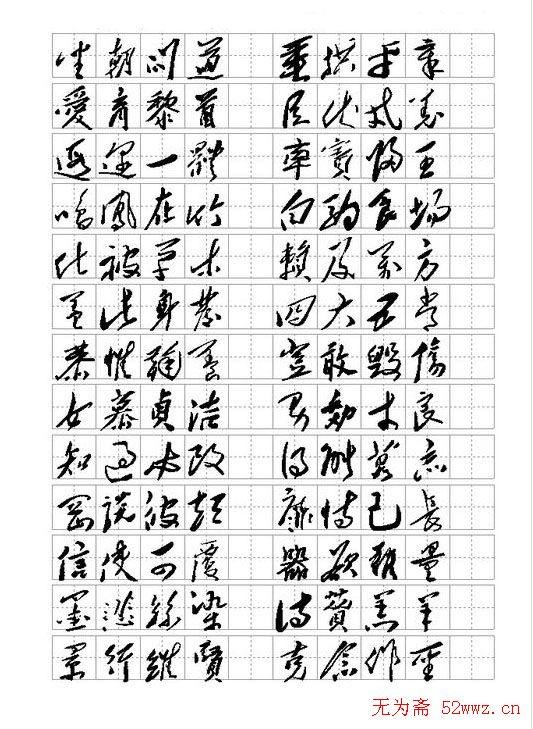 坐朝問道 垂拱平章
愛育黎首 臣伏戎羌
遐迩一體 率賓歸王
鳴鳳在竹 白駒食場
化被草木 賴及萬方
蓋此身髮 四大五常
恭惟鞠養 豈敢毀傷
女慕貞洁 男效才良
知過必改 得能莫忘
罔談彼短 靡恃己長
信使可覆 器欲難量
墨悲絲染 詩贊羔羊
景行維賢 克念作聖
无为斋 52wwz.cn